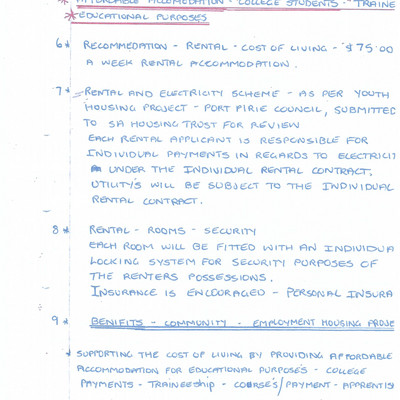 * AFFORDABLE ACCOMODATION - COLLEGE STUDENTS - TRAINE
* EDUCATIONAL PURPOSES
6* RECOMMEDATION - RENTAL - COST OF LIVING - $75.00
A WEEK RENTAL ACCOMMODATION.
7* RENTAL AND ELECTRICITY SCHEME - AS PER YOUTH
HOUSING PROJECT - PORT PIRIE COUNCIL, SUBMITTED
TO SA HOUSING TRUST FOR REVIEW
EACH RENTAL APPLICANT IS RESPONSIBLE FOR
INDIVIDUAL PAYMENTS IN REGARDS TO ELECTRICIT
UNDER THE INDIVIDUAL RENTAL CONTRACT,
UTILITY'S WILL BE SUBJECT TO THE INDIVIDUAL
RENTAL CONTRACT.
8* RENTAL - ROOMS - SECURITY
EACH ROOM WILL BE FITTED WITH AN INDIVIDUA
LOCKING SYSTEM FOR SECURITY PURPOSES OF
THE RENTERS POSSESSIONS.
INSURANCE IS ENCOURAGED - PERSONAL INSURA
9* BENIFITS - COMMUNITY - EMPLOYMENT HOUSING PROJE
* SUPPORTING THE COST OF LIVING BY PROVIDING AFFORDABLE
ACCOMMODATION FOR EDUCATIONAL PURPOSES - COLLEGE
PAYMENTS - TRAINEESHIP - COURSE'S/PAYMENT - APPRENTIS